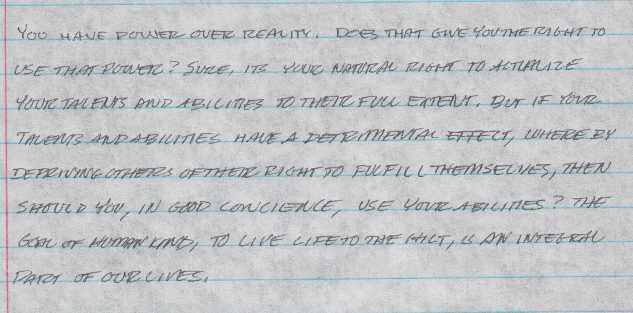 YOU HAVE POWER OVER REALITY. DOES THAT GIVE YOU THE RIGHT TO
USE THAT POWER? SURE, ITS YOUR NATURAL RIGHT TO ACTUALIZE
YOUR TALENTS AND ABILITIES TO THEIR FULL EXTENT. BUT IF YOUR
TALENTS AND ABILITIES HAVE A DETRIMENTAL EFFECT, WHERE BY
DEPRIVING OTHERS OF THEIR RIGHT TO FULFILL THEMSELVES, THEN
SHOULD YOU, IN GOOD CONCIENCE, USE YOUR ABILITIES? THE
GOAL OF HUMAN KIND, TO LIVE LIFE TO THE HILT, IS AN INTEGRAL
PART OF OUR LIVES.